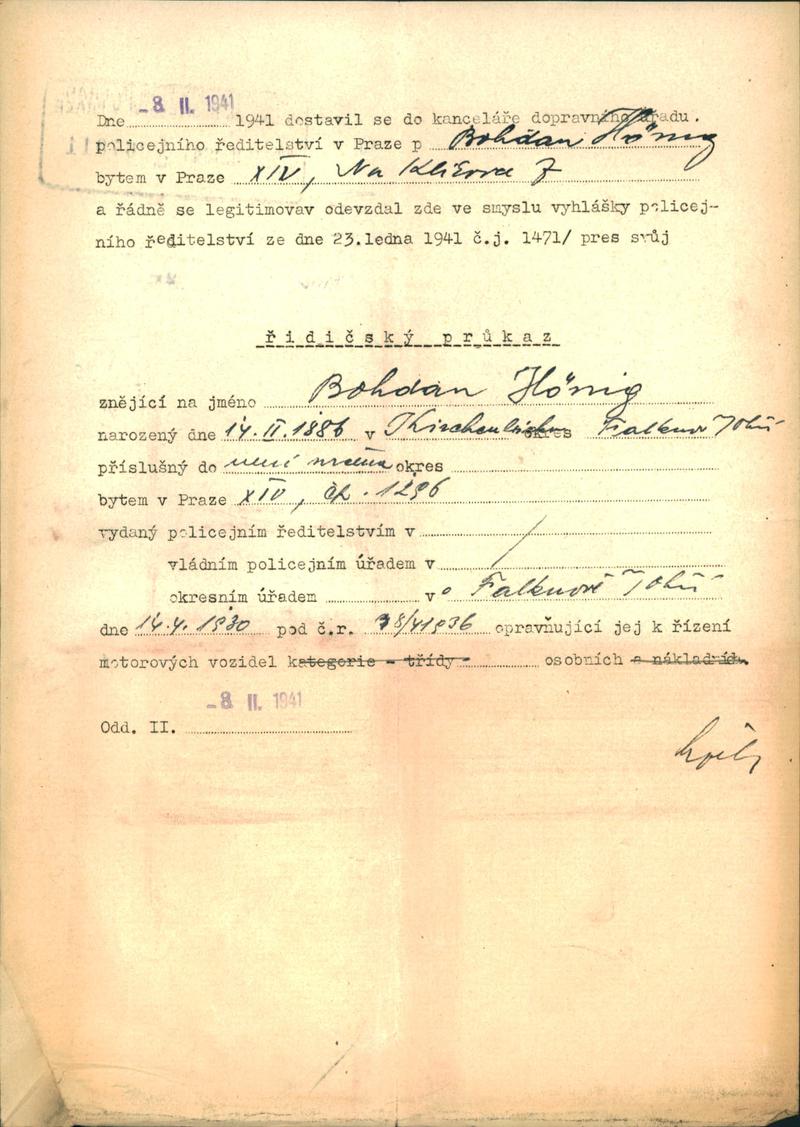 -8. II. 1941
Dne 1941 dostavil se do kanceláře dopravního úřadu.
policejního ředitelství v Praze p Bohdan Hönig
bytem v Praze XIV, Na 7
a řádně se legitimovav odevzdal zde ve smyslu vyhlášky policej-
ního ředitelství ze dne 23.ledna 1941 č.j. 1471/ pres svůj
řidičský průkaz
znějící na jméno Bohdan Hönig
narozený dne 14. II. 1886 v okres Falknov
příslušný do není okres
bytem v Praze XIV, čp. 1296
vydaný policejním ředitelstvím v
vládním policejním úřadem v
okresním úřadem v Falknově
dne 14.4. 1930 pod č.r. opravňující jej k řízení
motorových vozidel kategorie - třídy - osobních a nákladních.
-8. II. 1941
Odd. II.